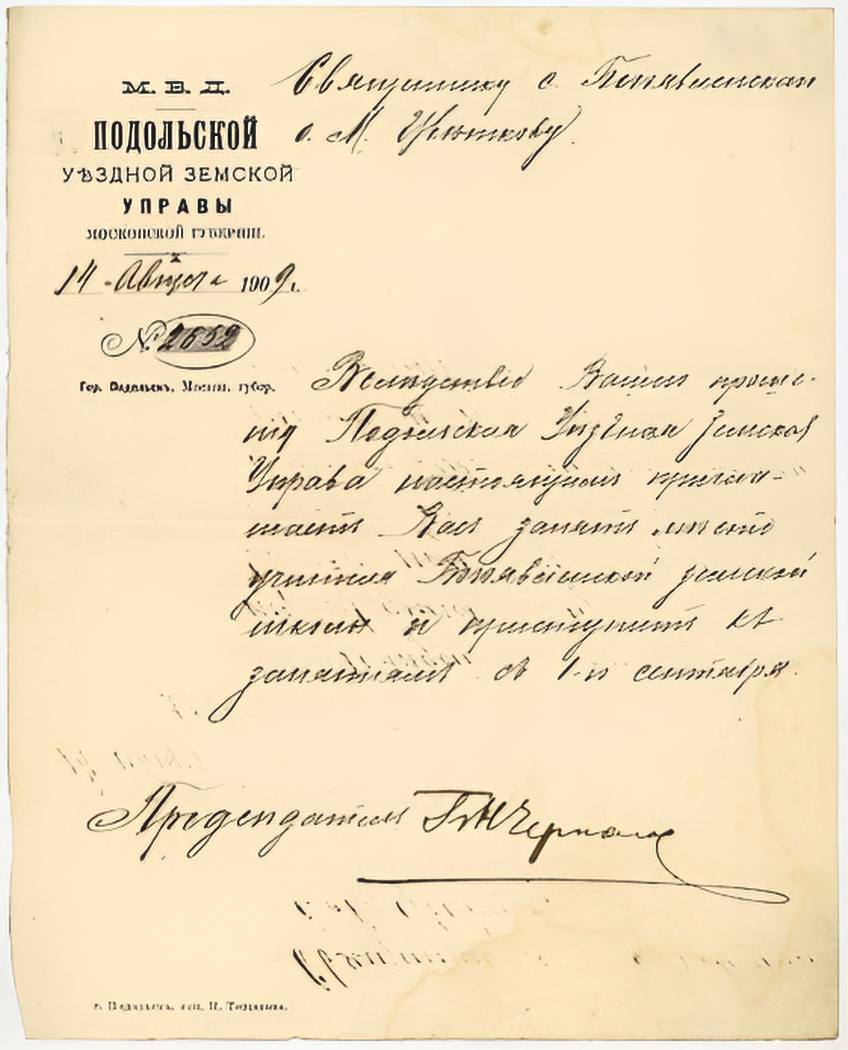 М. В. Д.
ПОДОЛЬСКОЙ
УѢЗДНОЙ ЗЕМСКОЙ
УПРАВЫ
МОСКОВСКОЙ ГУБЕРНІИ.
14 Августа 1909 г.
№ 2652
Гор. Подольскъ, Москов. губер.
Священнику с.
о. М.
Вслѣдствіе Вашего проше-
нія Подольская Уѣздная Земская
Управа настоящимъ пригла-
шаетъ Васъ занять мѣсто
учителя земской
школы и приступить къ
занятіямъ съ 1-го сентября.
Предсѣдатель
г. Подольскъ, тип.